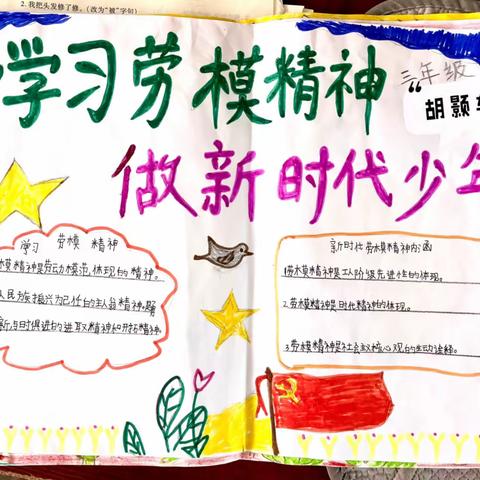 2. 我把头发修了修。(改为“被”字句)
学习劳模精神
三年级
胡颢
做新时代少年
学习 劳模 精神
模精神是劳动模范,体现的精神。
人民为振兴为己任的主人翁精神。
新,与时俱进的进取精神和开拓精神
新时代劳模精神内涵
1.劳模精神是工人阶级先进性的体现。
2.劳模精神是时代精神的体现。
3.劳模精神是社会主义核心观的生动诠释。